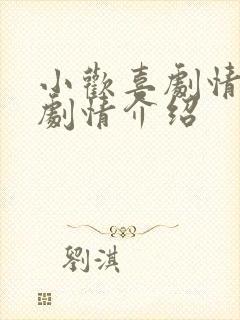 小歡喜劇情
劇情介紹
劉淇